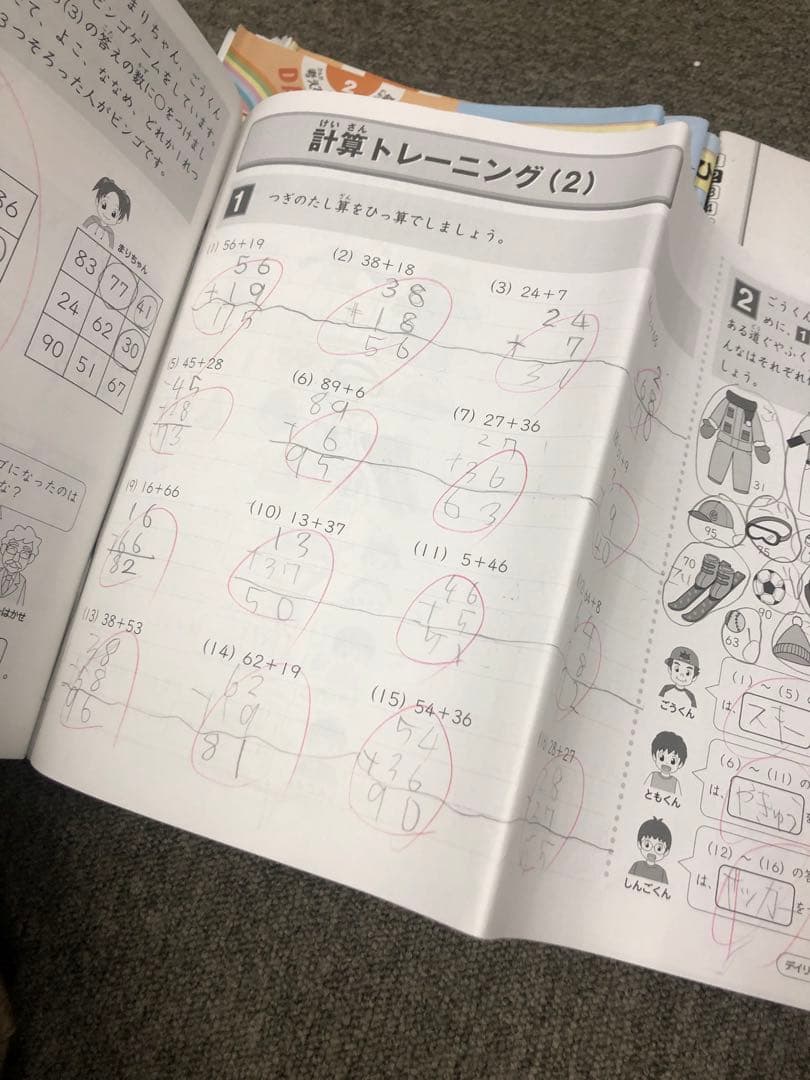 まりちゃん、ごうくん
(3)の答えの数に○をつけまし
ビンゴゲームをしています。
て、よこ、ななめ、どれか1れつ
3つそろった人がビンゴです。
まりちゃん
83 77 41
24 62 30
90 51 67
36
になったのは
な?
計算トレーニング(2)
けいさん
1 つぎのたし算をひっ算でしましょう。
(1) 56+19
56
+19
75
(2) 38+18
38
+18
56
(3) 24+7
24
+7
31
(5) 45+28
45
73
(6) 89+6
89
6
95
(7) 27+36
27
+36
63
(9) 16+66
16
66
82
(10) 13+37
13
+37
50
(11) 5+46
46
+5
51
(13) 38+53
38
58
96
(14) 62+19
62
19
81
(15) 54+36
54
+36
90
28+27
2 ごうくん
めに、1
ある道ぐやふく
んなはそれぞれ
しょう。
31
95
75
70
90
63
ごうくん
(1)~(5)
は、
スキー
ともくん
(6)~(11)の
は、
やきゅう
を
しんごくん
(12)~(16)の答
は、
サッカー
を
デイリ